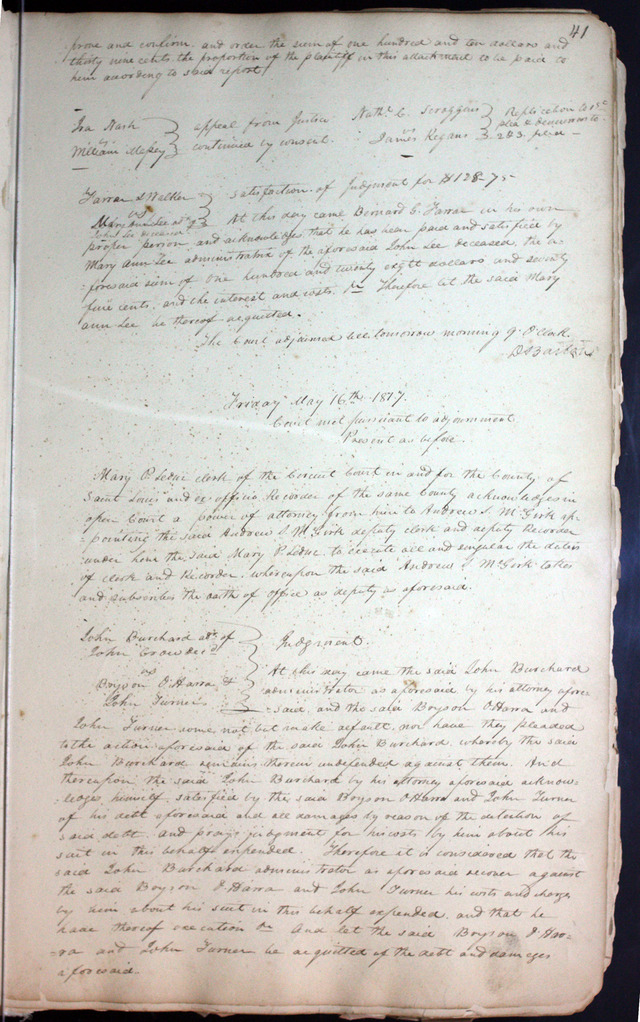 41
prove and confirm and order the sum of one hundred and ten dollars and
thirty nine cents the proportion of the plaintiff in this attachment to be paid to
him according to said report
Ira Nash } appeal from Justice Nathl. C. Scroggins } Replication to 1st
vs
William Massey } continued by consent. James Regans } 2 & 3. plea
plea & demurrer to
Farrar & Walker } Satisfaction of Judgment for $128-75
vs
Mary Ann Lee adx of
John Lee deceased } At this day came Bernard G. Farrar in his own
proper person and acknowledges that he has been paid and satisfied by
Mary Ann Lee administratrix of the aforesaid John Lee deceased, the a-
-foresaid sum of one hundred and twenty eight dollars and seventy
five cents, and the interest and costs &c Therefore let the said Mary
ann Lee be thereof acquitted.
The Court adjourned till tomorrow morning 9 O Clock.
Friday May 16th 1817.
Court met pursuant to adjournment
Present as before.
Mary P. Leduc clerk of the Circuit Court in and for the County of
Saint Louis and ex officio Recorder of the same County acknowledges in
open Court a power of attorney from him to Andrew S. McGirk ap-
-pointing the said Andrew S McGirk deputy clerk and deputy Recorder
under him the said Mary P. Leduc to execute all and singular the duties
of clerk and Recorder, whereupon the said Andrew S McGirk takes
and subscribes the oath of office as deputy as aforesaid.
John Burchard adr. of
John Crow decd } Judgment.
vs
Bryson O Harra & } At this day came the said John Burchard
administrator as aforesaid by his attorney afore
John Turner } -said, and the said Bryson O Harra and
John Turner come not but make default nor have they pleaded
to the action aforesaid of the said John Burchard, whereby the said
John Burchard remains therein undefended against them. And
thereupon the said John Burchard by his attorney aforesaid acknow-
-ledges himself satisfied by the said Bryson O Harra and John Turner
of his debt aforesaid and all damages by reason of the detention of
said debt. and prays judgment for his costs by him about his
suit in this behalf expended. Therefore it is considered that the
said John Burchard administrator as aforesaid recover against
the said Bryson O Harra and John Turner his costs and charges
by him about his suit in this behalf expended, and that he
have thereof execution &c And let the said Bryson O Har-
-ra and John Turner be acquitted of the debt and damages
aforesaid.